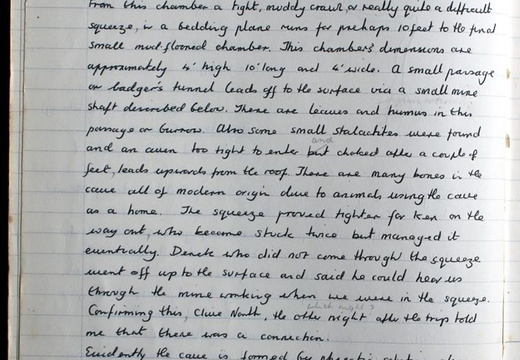 from this chamber a tight, muddy crawl, or really quite a difficult
squeeze, in a bedding plane runs for perhaps 10 feet to the final
small mud floored chamber. This chambers dimensions are
approximately 4' high 10' long and 4' wide. A small passage
or badger's tunnel leads off to the surface via a small mine
shaft described below. There are leaves and humus in this
passage or burrow. Also some small stalactites were found
and
and an aven too tight to enter but choked after a couple of
feet, leads upwards from the roof. There are many bones in the
cave all of modern origin due to animals using the cave
as a home. The squeeze proved tighter for Ken on the
way out, who became stuck twice but managed it
eventually. Derek who did not come through the squeeze
went off up to the surface and said he could hear us
through the mine working when we were in the squeeze.
which night?
Confirming this, Clive North, the other night after the trip told
me that there was a connection.
Evidently the cave is formed by phreatic